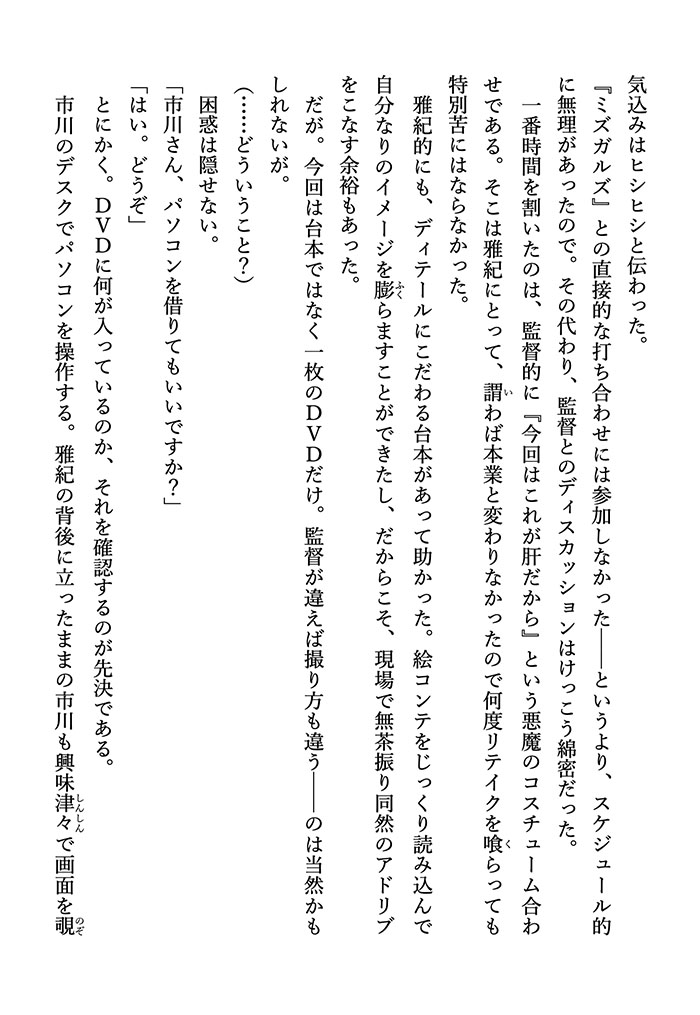 気込みはヒシヒシと伝わった。
『ミズガルズ』との直接的な打ち合わせには参加しなかった――というより、スケジュール的
に無理があったので。その代わり、監督とのディスカッションはけっこう綿密だった。
一番時間を割いたのは、監督的に『今回はこれが肝だから』という悪魔のコスチューム合わ
せである。そこは雅紀にとって、謂わば本業と変わりなかったので何度リテイクを喰らっても
特別苦にはならなかった。
雅紀的にも、ディテールにこだわる台本があって助かった。絵コンテをじっくり読み込んで
自分なりのイメージを膨らますことができたし、だからこそ、現場で無茶振り同然のアドリブ
をこなす余裕もあった。
だが。今回は台本ではなく一枚のＤＶＤだけ。監督が違えば撮り方も違う――のは当然かも
しれないが。
（……どういうこと？）
困惑は隠せない。
「市川さん、パソコンを借りてもいいですか？」
「はい。どうぞ」
とにかく。ＤＶＤに何が入っているのか、それを確認するのが先決である。
市川のデスクでパソコンを操作する。雅紀の背後に立ったままの市川も興味津々で画面を覗